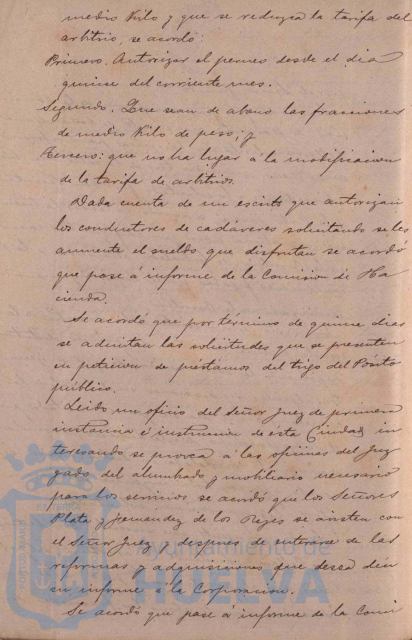 medio Kilo y que se reduzca la tarifa del
arbitrio, se acordó:
Primero. Autorizar el pesaje desde el dia
quince del corriente mes.
Segundo. Que sean de abono las fracciones
de medio Kilo de peso; y
Tercero: que no ha lugar á la modificacion
de la tarifa de arbitrios.
Dada cuenta de un escrito que autorizan
los conductores de cadáveres solicitando se les
aumente el sueldo que disfrutan se acordó
que pase á informe de la Comision de Ha
cienda.
Se acordó que por término de quince dias
se admitan las solicitudes que se presenten
en peticion de préstamos del trigo del Pósito
público.
Leido un oficio del Señor Juez de primera
instancia é instruccion de ésta Ciudad, in
teresando se provea á las oficinas del Juz
gado del alumbrado y mobiliario necesario
para los servicios se acordó que los Señores
Plata y Hernandez de los Reyes se avisten con
el Señor Juez y despues de enterarse de las
reformas y adquisiciones que desea den
su informe á la Corporacion.
Se acordó que pase á informe de la Comi
Ayuntamiento de
HUELVA